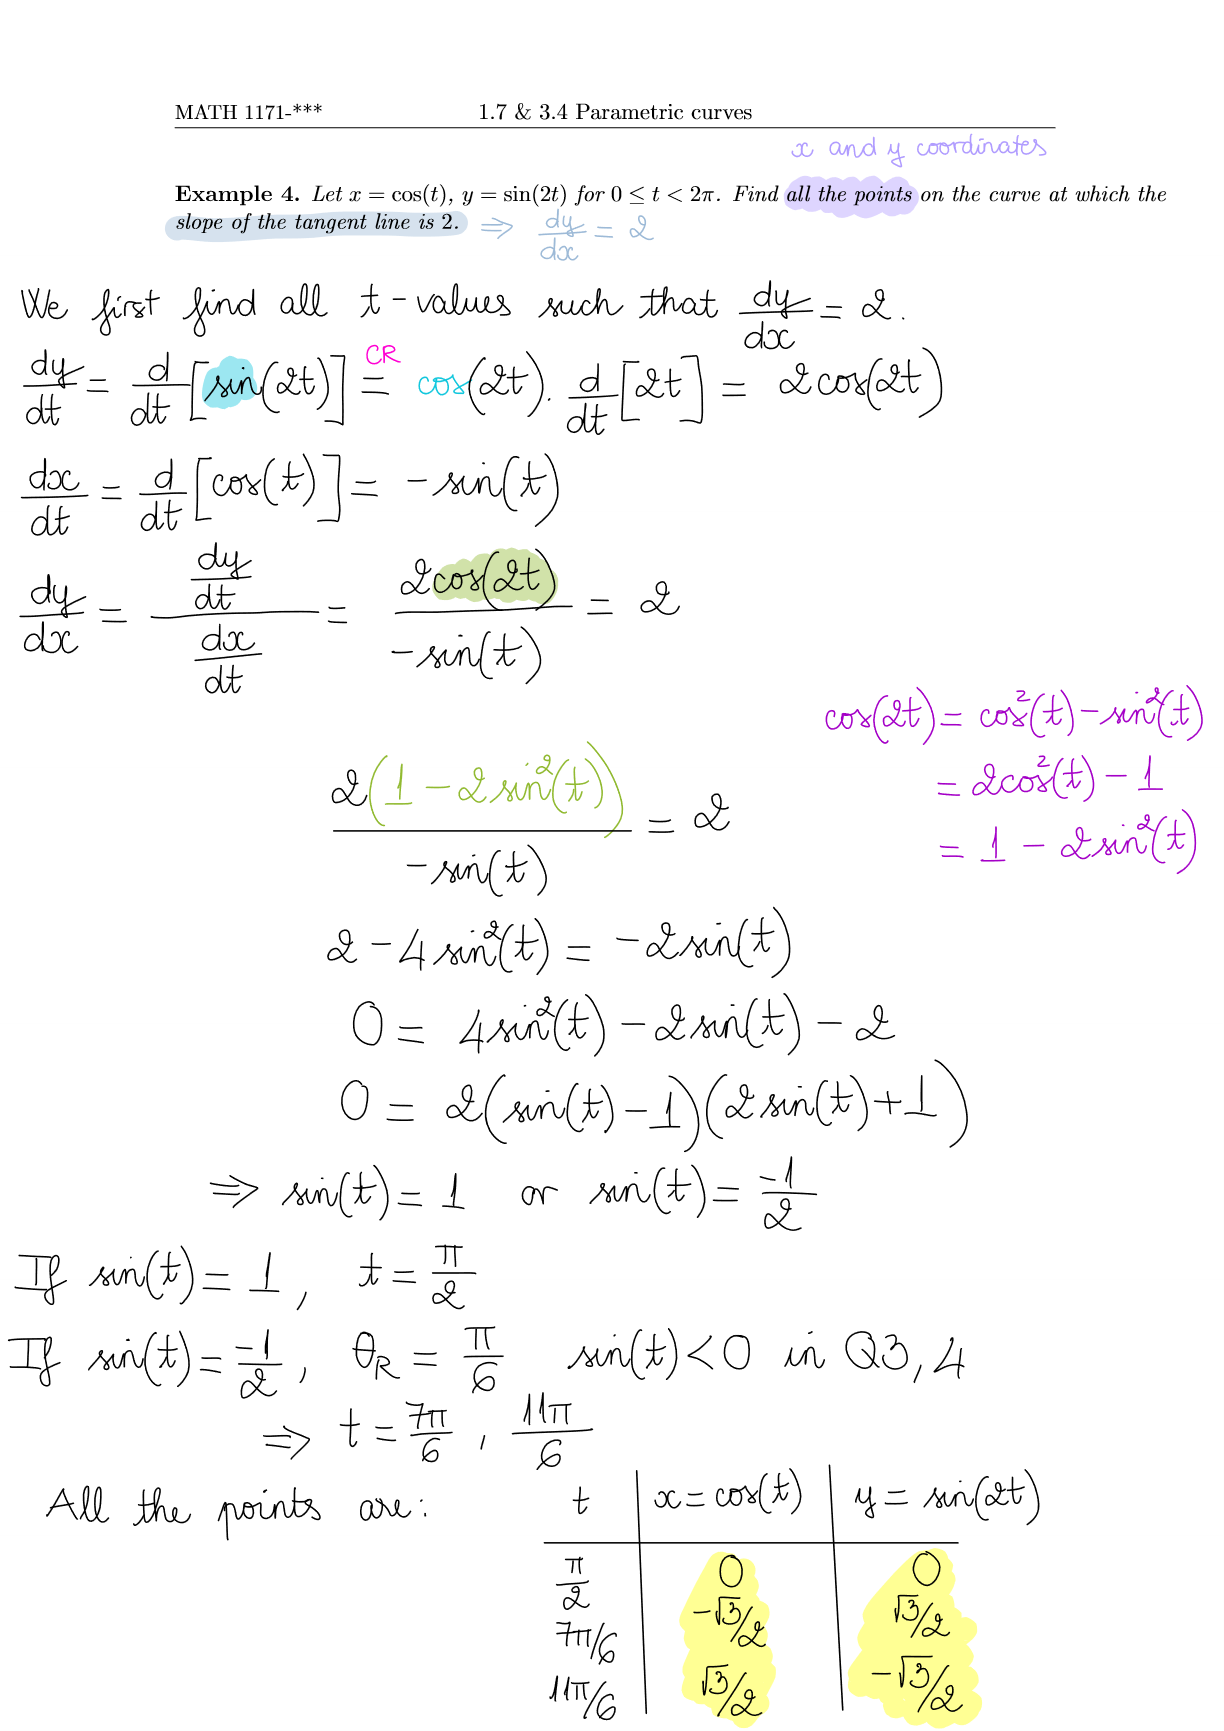 MATH 1171-*** 1.7 & 3.4 Parametric curves
x and y coordinates
Example 4. Let x = cos(t), y = sin(2t) for 0 ≤ t < 2π. Find all the points on the curve at which the
slope of the tangent line is 2. ⇒ dy/dx = 2
We first find all t-values such that dy/dx = 2.
dy/dt = d/dt [sin(2t)] =^CR cos(2t) · d/dt [2t] = 2cos(2t)
dx/dt = d/dt [cos(t)] = -sin(t)
dy/dx = (dy/dt)/(dx/dt) = 2cos(2t)/(-sin(t)) = 2
cos(2t) = cos²(t) - sin²(t)
= 2cos²(t) - 1
= 1 - 2sin²(t)
2(1 - 2sin²(t))/(-sin(t)) = 2
2 - 4sin²(t) = -2sin(t)
0 = 4sin²(t) - 2sin(t) - 2
0 = 2(sin(t) - 1)(2sin(t) + 1)
⇒ sin(t) = 1 or sin(t) = -1/2
If sin(t) = 1, t = π/2
If sin(t) = -1/2, θ_R = π/6 sin(t) < 0 in Q3,4
⇒ t = 7π/6, 11π/6
All the points are: t x = cos(t) y = sin(2t)
π/2 0 0
7π/6 -√3/2 √3/2
11π/6 √3/2 -√3/2